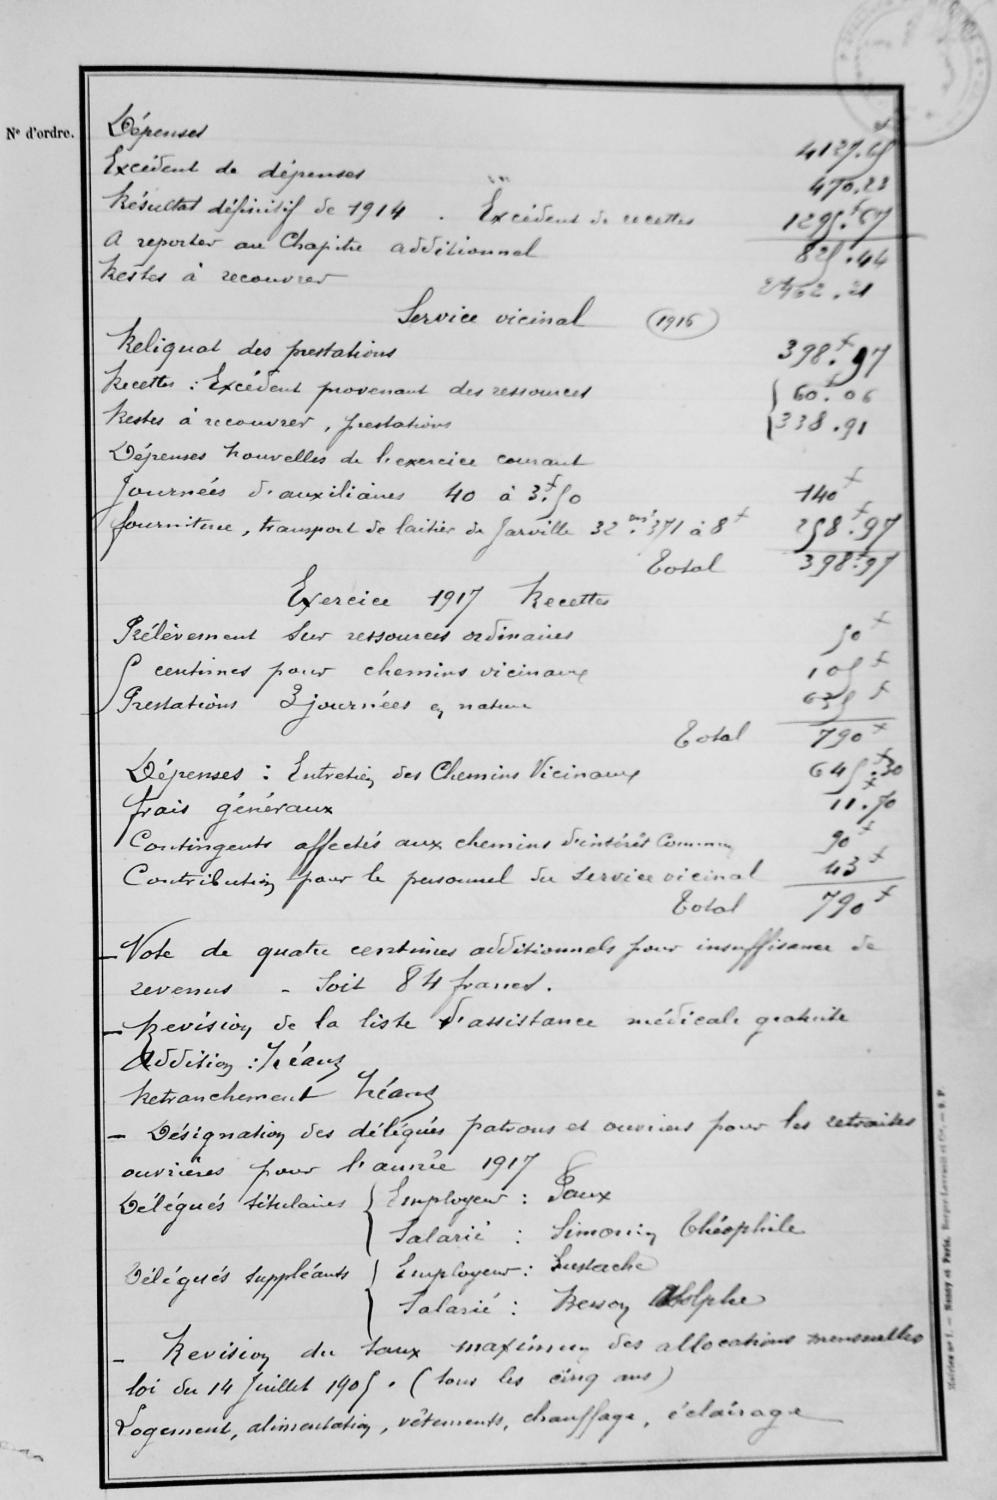 N° d'ordre.
Dépenses 4127.65
Excédent de dépenses 470.23
Résultat définitif de 1914 . Excédent de recettes 1295f.67
A reporter au Chapitre additionnel 825.44
Restes à recouvrer 62.21
Service vicinal (1916)
Reliquat des prestations 398f.97
Recettes : Excédent provenant des ressources { 60f.06
Restes à recouvrer, prestations { 338.91
Dépenses nouvelles de l'exercice courant
Journées d'auxiliaires 40 à 3f.50 140f
fourniture, transport de laitier de Jarville 32m3.371 à 8f 258f.97
Total 398f.97
Exercice 1917 Recettes
Prélèvement sur ressources ordinaires 50f
5 centimes pour chemins vicinaux 105f
Prestations 3 journées en nature 635f
Total 790f
Dépenses : Entretien des Chemins Vicinaux 645f.30
frais généraux 11f.70
Contingents affectés aux chemins d'intérêt Commun 90f
Contribution pour le personnel du service vicinal 43f
Total 790f
- Vote de quatre centimes additionnels pour insuffisance de
revenus - Soit 84 francs.
- Revision de la liste d'assistance médicale gratuite
Addition : Néant
Retranchement Néant
- Désignation des délégués patrons et ouvriers pour les retraites
ouvrières pour l'année 1917
Délégués titulaires { Employeur :
Salarié : Simonin Théophile
Délégués suppléants { Employeur : Eustache
Salarié : Adolphe
- Revision du taux maximum des allocations mensuelles
loi du 14 Juillet 1905. (tous les cinq ans)
Logement, alimentation, vêtements, chauffage, éclairage